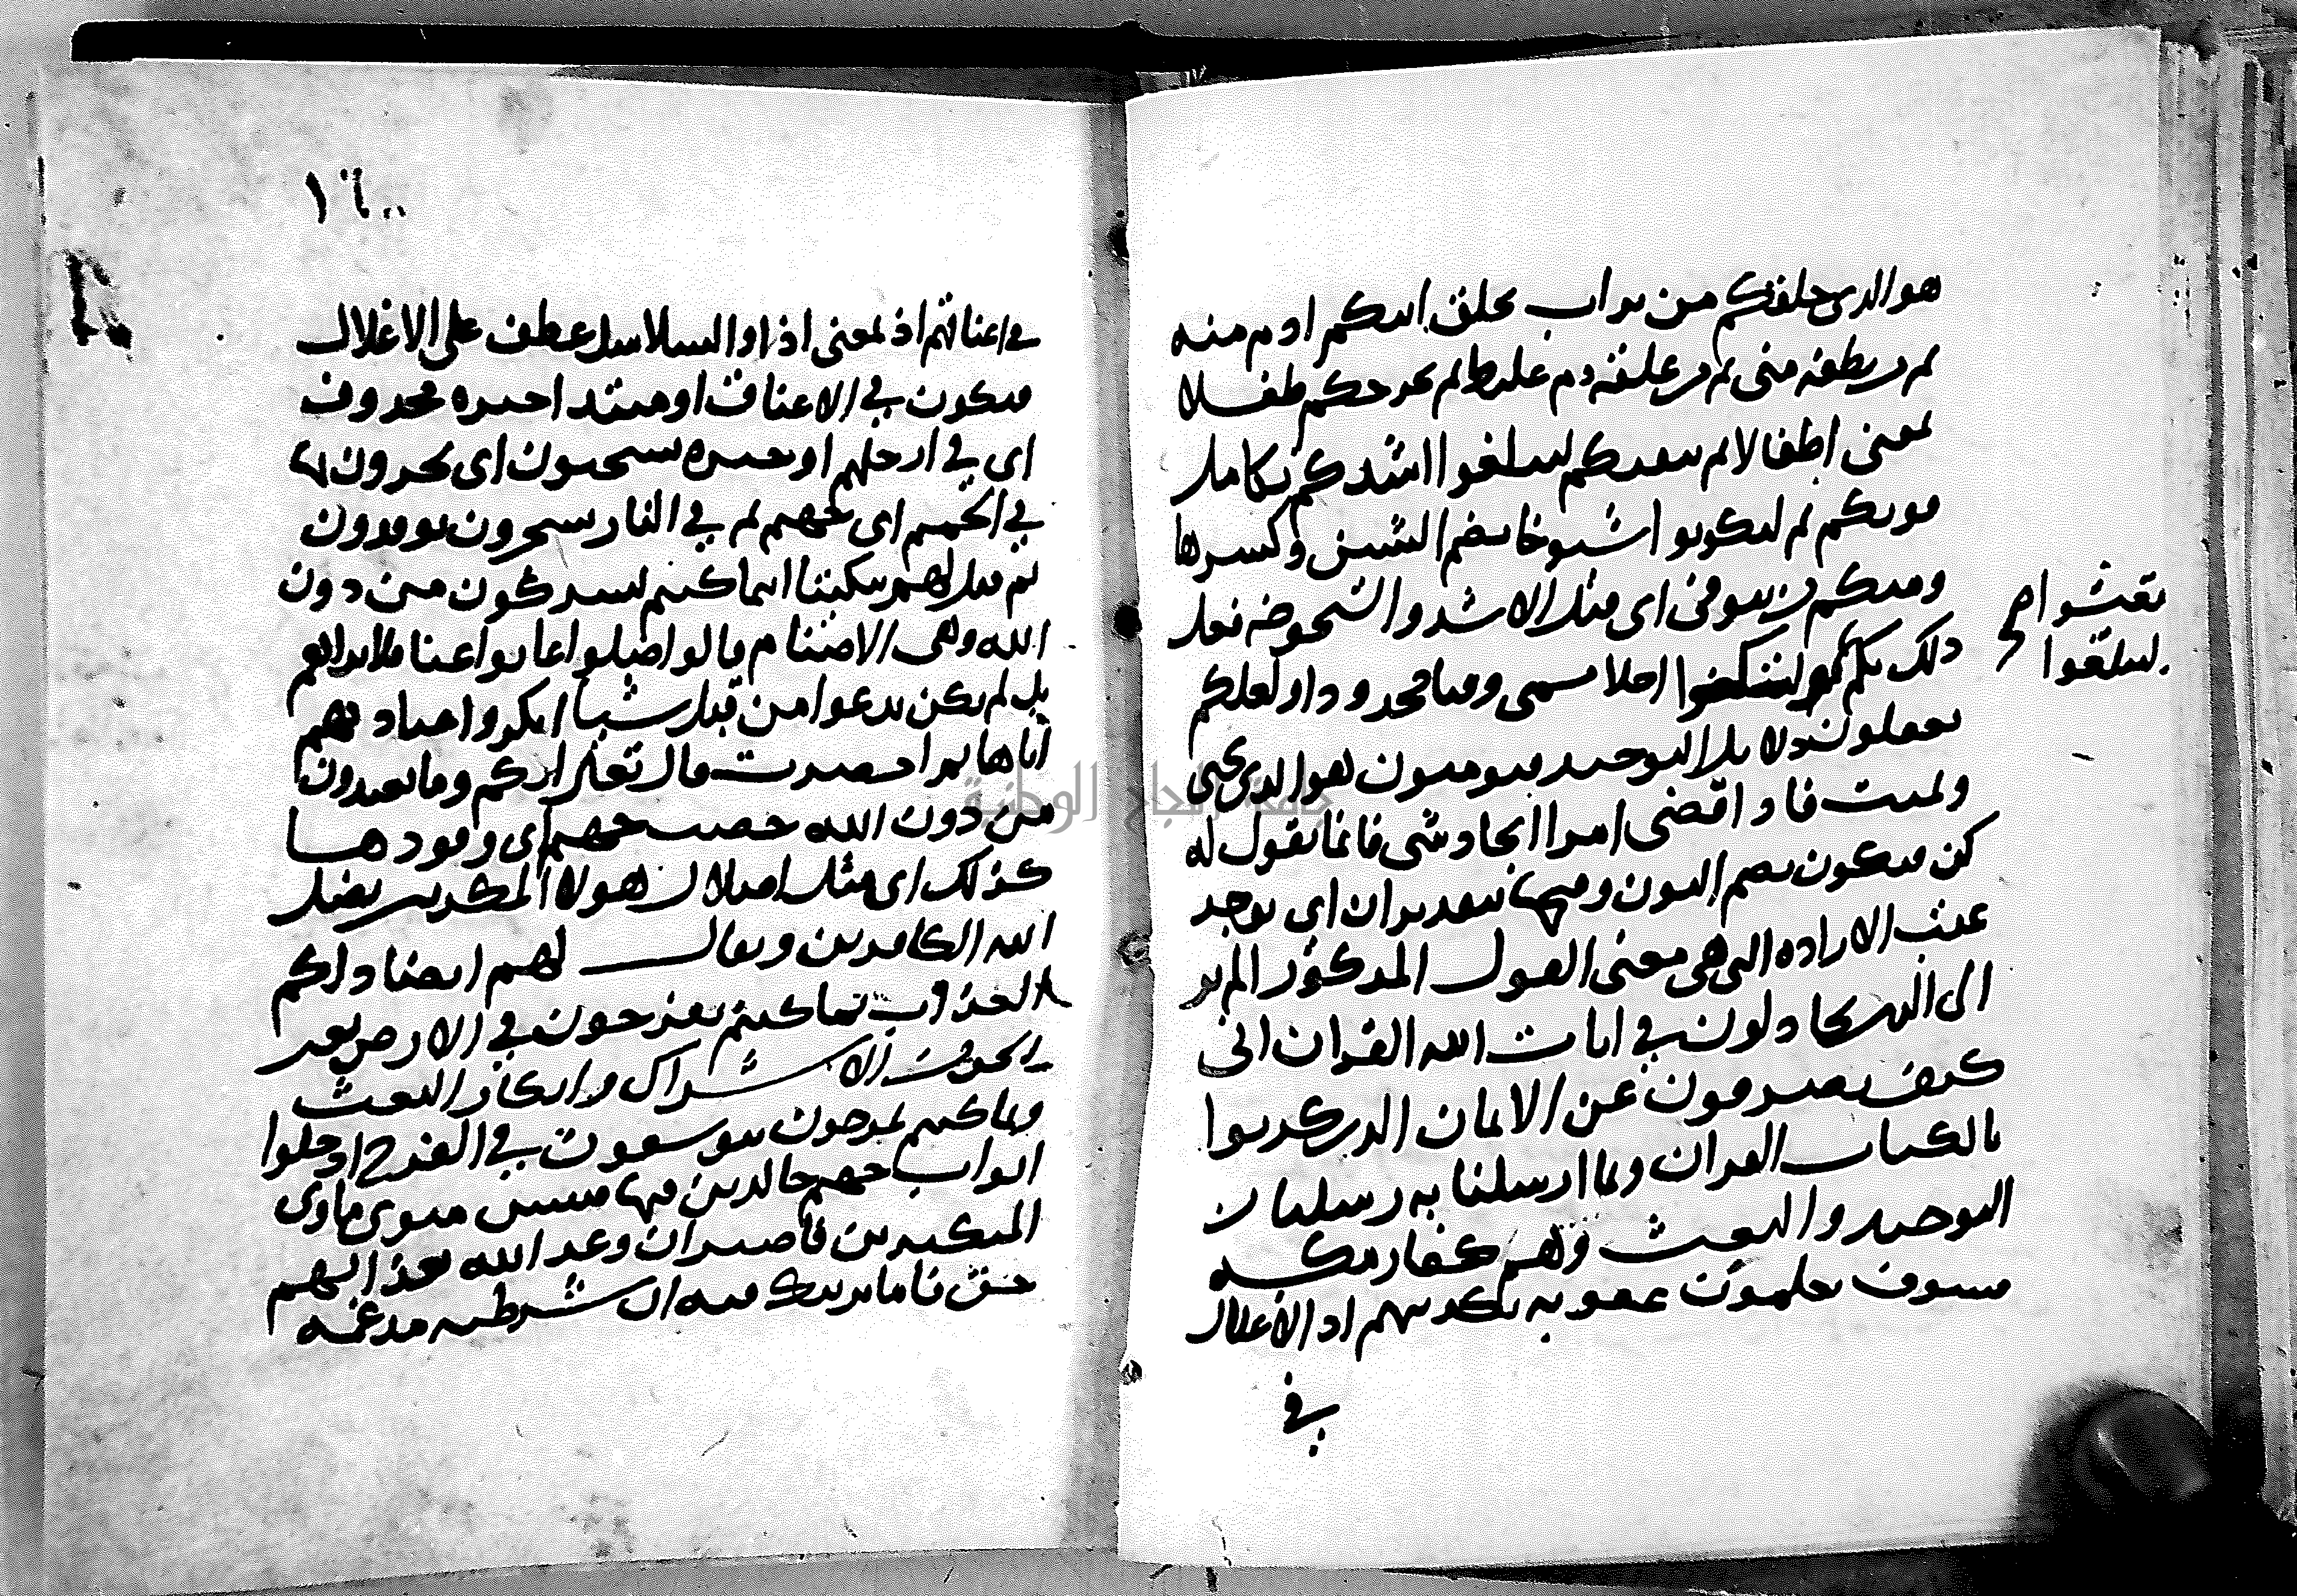 هو الذى خلقكم من تراب بخلق ابيكم ادم منه
ثم من نطفه منى ثم من علقه دم غليظ ثم يخرجكم طفلا
بمعنى اطفالا ثم يبقيكم لتبلغوا اشدكم تكامل
قوتكم ثم لتكونوا شيوخا بضم الشين وكسرها
ومنكم من يتوفى اى قبل الاشد والشيخوخه فعل
ذلك بكم لتعيشوا
ولتبلغوا اجلا مسمى وقتا محدودا ولعلكم
تعقلون دلايل التوحيد فتومنون هو الذى يحيى
ويميت فاذا قضى امرا ايجاد شى فانما يقول له
كن فيكون بضم النون وفتحها بتقدير ان اى يوجد
عقب الاراده التى هى معنى القول المذكور الم تر
الى الذين يجادلون في ايات الله القران انى
كيف يصرفون عن الايمان الذين كذبوا
بالكتاب القران وبما ارسلنا به رسلنا من
التوحيد والبعث وهم كفار مكه
فسوف يعلمون عقوبه تكذيبهم اذ الاغلال
في
١٦٠
في اعناقهم اذ بمعنى اذا والسلاسل عطف على الاغلال
فتكون في الاعناق او مبتدا خبره محذوف
اى في ارجلهم او خبره يسحبون اى يجرون بها
في الحميم اى جهنم ثم في النار يسجرون يوقدون
ثم قيل لهم تبكيتا اينما كنتم تشركون من دون
الله وهى الاصنام قالوا ضلوا غابوا عنا فلا نراهم
بل لم نكن ندعوا من قبل شيا انكروا عبادتهم
اياها ثم احضرت قال تعالى انكم وما تعبدون
من دون الله حصب جهنم اى وقودها
كذلك اى مثل اضلال هولا المكذبين يضل
الله الكافرين ويقال لهم ايضا ذلكم
العذاب بما كنتم تفرحون في الارض بغير
الحق من الاشراك وانكار البعث
وبما كنتم تمرحون تتوسعون في الفرح ادخلوا
ابواب جهنم خالدين فيها فبيس مثوى ماوى
المتكبرين فاصبر ان وعد الله بعذابهم
حق فاما نرينك فيه ان شرطيه مدغمه